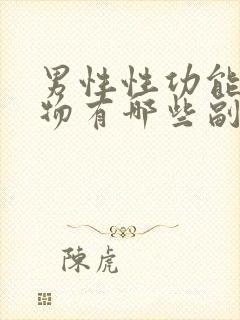 男性性功能
物有哪些副
陳虎